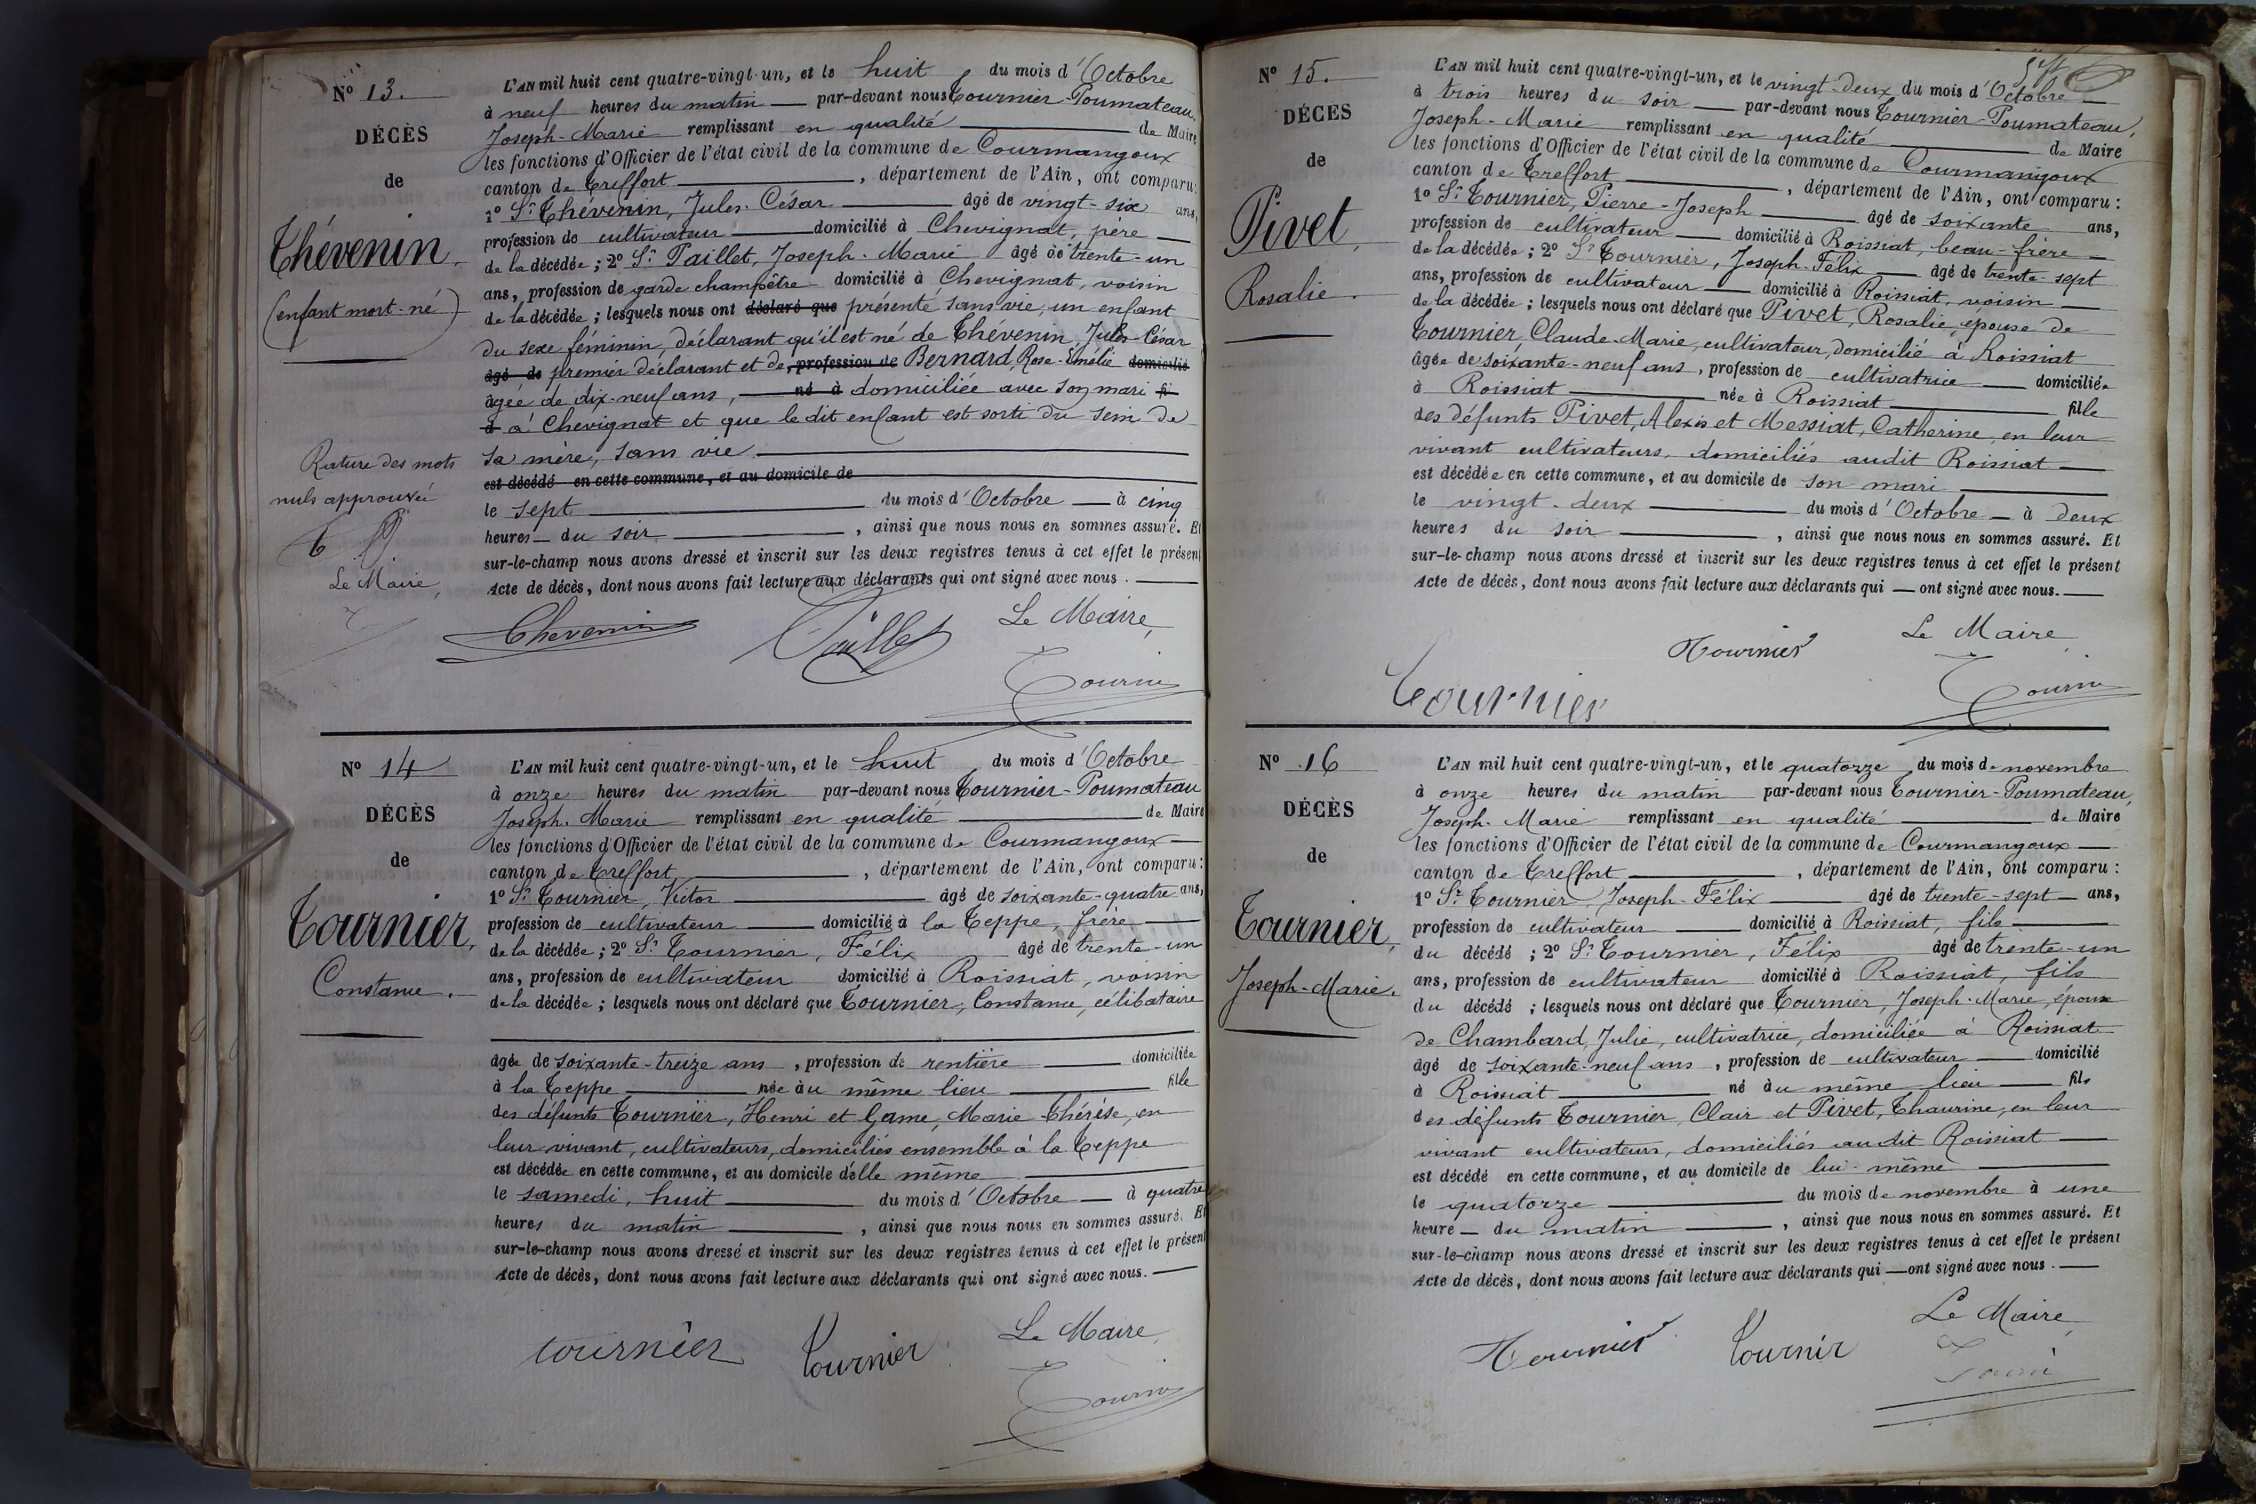 Nº 13.
DÉCÈS
de
Thévenin.
(enfant mort-né)
Rature des mots
nuls approuvée
Le Maire,
L'AN mil huit cent quatre-vingt-un, et le huit du mois d'Octobre
à neuf heures du matin — par-devant nous Tournier-Poumateau,
Joseph-Marie remplissant en qualité — de Maire
les fonctions d'Officier de l'état civil de la commune de Courmangoux
canton de Treffort —, département de l'Ain, ont comparu:
1º Sr Thévenin, Jules-César — âgé de vingt-six ans,
profession de cultivateur — domicilié à Chevignat, père —
de la décédée; 2º Sr Paillet, Joseph-Marie âgé de trente-un
ans, profession de garde champêtre domicilié à Chevignat, voisin
de la décédée; lesquels nous ont déclaré que présenté sans vie, un enfant
du sexe féminin, déclarant qu'il est né de Thévenin, Jules-César
âgé de premier déclarant et de, profession de Bernard, Rose-Emélie domicilié
âgée de dix-neuf ans, — né à domiciliée avec son mari fi
d à Chevignat et que le dit enfant est sorti du sein de
sa mère, sans vie —
est décédé en cette commune, et au domicile de
le sept — du mois d'Octobre — à cinq
heures — du soir —, ainsi que nous nous en sommes assuré. Et
sur-le-champ nous avons dressé et inscrit sur les deux registres tenus à cet effet le présent
Acte de décès, dont nous avons fait lecture aux déclarants qui ont signé avec nous. —
Le Maire,
Thevenin Paillet
Tournier
Nº 14
DÉCÈS
de
Tournier,
Constance.
L'AN mil huit cent quatre-vingt-un, et le huit du mois d'Octobre
à onze heures du matin par-devant nous Tournier-Poumateau
Joseph-Marie remplissant en qualité — de Maire
les fonctions d'Officier de l'état civil de la commune de Courmangoux —
canton de Treffort —, département de l'Ain, ont comparu:
1º Sr Tournier, Victor — âgé de soixante-quatre ans,
profession de cultivateur — domicilié à la Teppe, frère —
de la décédée; 2º Sr Tournier, Félix âgé de trente-un
ans, profession de cultivateur domicilié à Roissiat, voisin
de la décédée; lesquels nous ont déclaré que Tournier, Constance, célibataire
âgée de soixante-treize ans, profession de rentière — domiciliée
à la Teppe — née au même lieu — fille
des défunts Tournier, Henri et Game, Marie Thérèse, en
leur vivant, cultivateurs, domiciliés ensemble à la Teppe
est décédée en cette commune, et au domicile d'elle même —
le samedi, huit — du mois d'Octobre — à quatre
heures du matin —, ainsi que nous nous en sommes assuré. Et
sur-le-champ nous avons dressé et inscrit sur les deux registres tenus à cet effet le présent
Acte de décès, dont nous avons fait lecture aux déclarants qui ont signé avec nous. —
Le Maire,
tournier Tournier
Tournier
Nº 15.
DÉCÈS
de
Pivet,
Rosalie.
L'AN mil huit cent quatre-vingt-un, et le vingt-deux du mois d'Octobre —
à trois heures du soir — par-devant nous Tournier-Poumateau,
Joseph-Marie remplissant en qualité — de Maire
les fonctions d'Officier de l'état civil de la commune de Courmangoux
canton de Treffort —, département de l'Ain, ont comparu:
1º Sr Tournier, Pierre-Joseph — âgé de soixante ans,
profession de cultivateur — domicilié à Roissiat, beau-frère —
de la décédée; 2º Sr Tournier, Joseph-Félix — âgé de trente-sept
ans, profession de cultivateur — domicilié à Roissiat, voisin —
de la décédée; lesquels nous ont déclaré que Pivet, Rosalie, épouse de
Tournier, Claude-Marie, cultivateur, domicilié à Roissiat
âgée de soixante-neuf ans, profession de cultivatrice — domiciliée
à Roissiat — née à Roissiat — fille
des défunts Pivet, Alexis et Messiat, Catherine, en leur
vivant cultivateurs, domiciliés audit Roissiat —
est décédée en cette commune, et au domicile de son mari —
le vingt-deux — du mois d'Octobre — à deux
heures du soir —, ainsi que nous nous en sommes assuré. Et
sur-le-champ nous avons dressé et inscrit sur les deux registres tenus à cet effet le présent
Acte de décès, dont nous avons fait lecture aux déclarants qui — ont signé avec nous. —
Le Maire,
Tournier
Tournier
Tournier
Nº 16
DÉCÈS
de
Tournier,
Joseph-Marie.
L'AN mil huit cent quatre-vingt-un, et le quatorze du mois de novembre
à onze heures du matin par-devant nous Tournier-Poumateau,
Joseph-Marie remplissant en qualité — de Maire
les fonctions d'Officier de l'état civil de la commune de Courmangoux —
canton de Treffort —, département de l'Ain, ont comparu:
1º Sr Tournier, Joseph-Félix — âgé de trente-sept — ans,
profession de cultivateur — domicilié à Roissiat, fils —
du décédé; 2º Sr Tournier, Félix âgé de trente-un
ans, profession de cultivateur domicilié à Roissiat, fils
du décédé; lesquels nous ont déclaré que Tournier, Joseph-Marie, époux
de Chambard, Julie, cultivatrice, domiciliée à Roissiat
âgé de soixante-neuf ans, profession de cultivateur — domicilié
à Roissiat — né au même lieu — fils
des défunts Tournier, Clair et Pivet, Thaurine, en leur
vivant cultivateurs, domiciliés audit Roissiat —
est décédé en cette commune, et au domicile de lui-même —
le quatorze — du mois de novembre à une
heure — du matin —, ainsi que nous nous en sommes assuré. Et
sur-le-champ nous avons dressé et inscrit sur les deux registres tenus à cet effet le présent
Acte de décès, dont nous avons fait lecture aux déclarants qui — ont signé avec nous. —
Le Maire,
Tournier Tournir